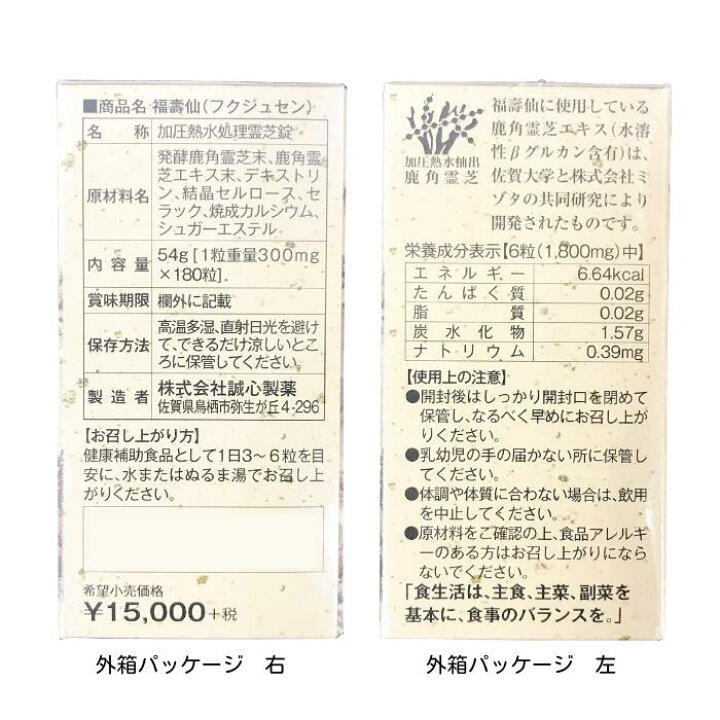 ■商品名 福壽仙(フクジュセン)
名称 加圧熱水処理霊芝錠
原材料名 発酵鹿角霊芝末、鹿角霊
芝エキス末、デキストリ
ン、結晶セルロース、セ
ラック、焼成カルシウム、
シュガーエステル
内容量 54g[1粒重量300mg
×180粒].
賞味期限 欄外に記載
保存方法 高温多湿、直射日光を避け
て、できるだけ涼しいとこ
ろに保管してください。
製造者 株式会社誠心製薬
佐賀県鳥栖市弥生が丘4-296
【お召し上がり方】
健康補助食品として1日3~6粒を目
安に、水またはぬるま湯でお召し上
がりください。
希望小売価格
¥15,000+税
外箱パッケージ 右
加圧熱水抽出
鹿角霊芝
福壽仙に使用している
鹿角霊芝エキス(水溶
性βグルカン含有)は、
佐賀大学と株式会社ミ
ゾタの共同研究により
開発されたものです。
栄養成分表示【6粒(1,800mg)中】
エネルギー 6.64kcal
たんぱく質 0.02g
脂質 0.02g
炭水化物 1.57g
ナトリウム 0.39mg
【使用上の注意】
●開封後はしっかり開封口を閉めて
保管し、なるべく早めにお召し上が
りください。
●乳幼児の手の届かない所に保管し
てください。
●体調や体質に合わない場合は、飲用
を中止してください。
●原材料をご確認の上、食品アレルギ
ーのある方はお召し上がりになら
ないでください。
「食生活は、主食、主菜、副菜を
基本に、食事のバランスを。」
外箱パッケージ 左